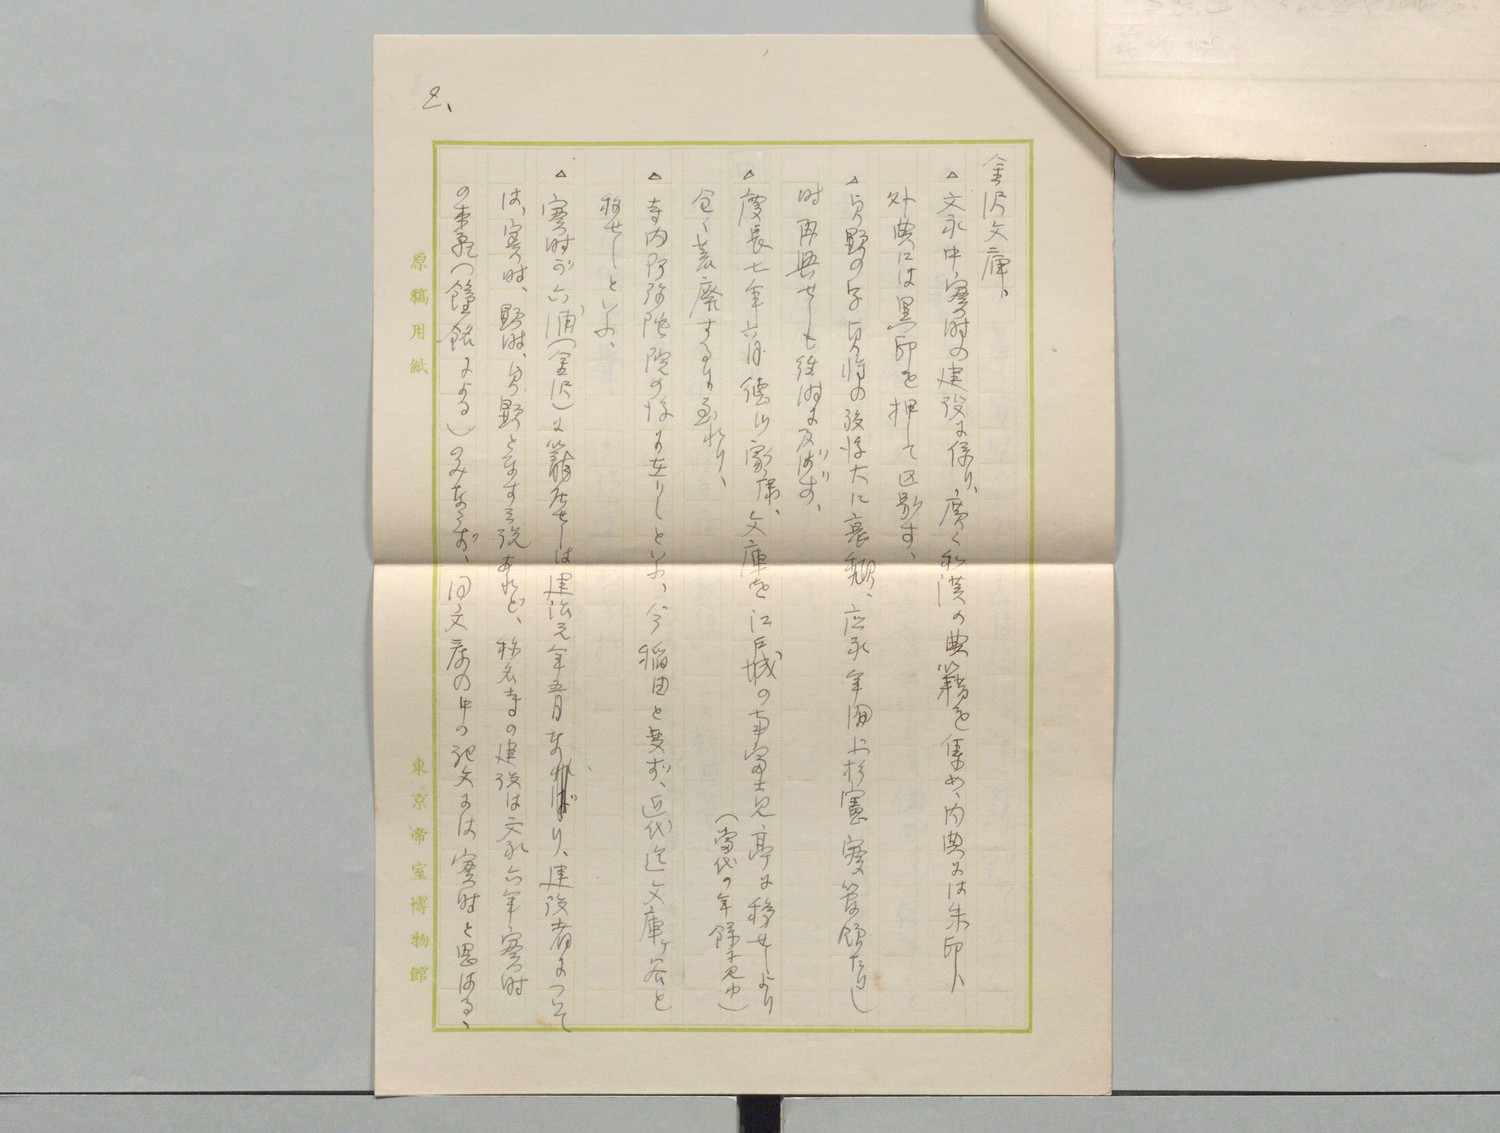 2、
金沢文庫、
△文永中実時の建設に係り、廣く和漢の典籍を集め、内典には朱印、
外典には黒印を押して区別す、
△貞顕の子貞将の歿後大に衰頽、応永年間上杉憲実管領たりし
時再興せしも往時に及ばず、
△慶長七年六月徳川家康、文庫を江戸城の南富士見亭に移せしより
(当代の年録に見ゆ)
全く荒廃するに至れり、
△寺内阿弥陀院の後に在りしといふ、今稲田と変ず、近代迄文庫ヶ谷と
称せしといふ、
△実時が六浦(金沢)に籠居せしは建治元年五月なり、建設者について
は、実時、顕時、貞顕となす三説あれど、称名寺の建設は文永六年実時
の本願(鐘銘による)のみならず、同文庫の中の記文には実時と思はる、
原稿用紙
東京帝室博物館